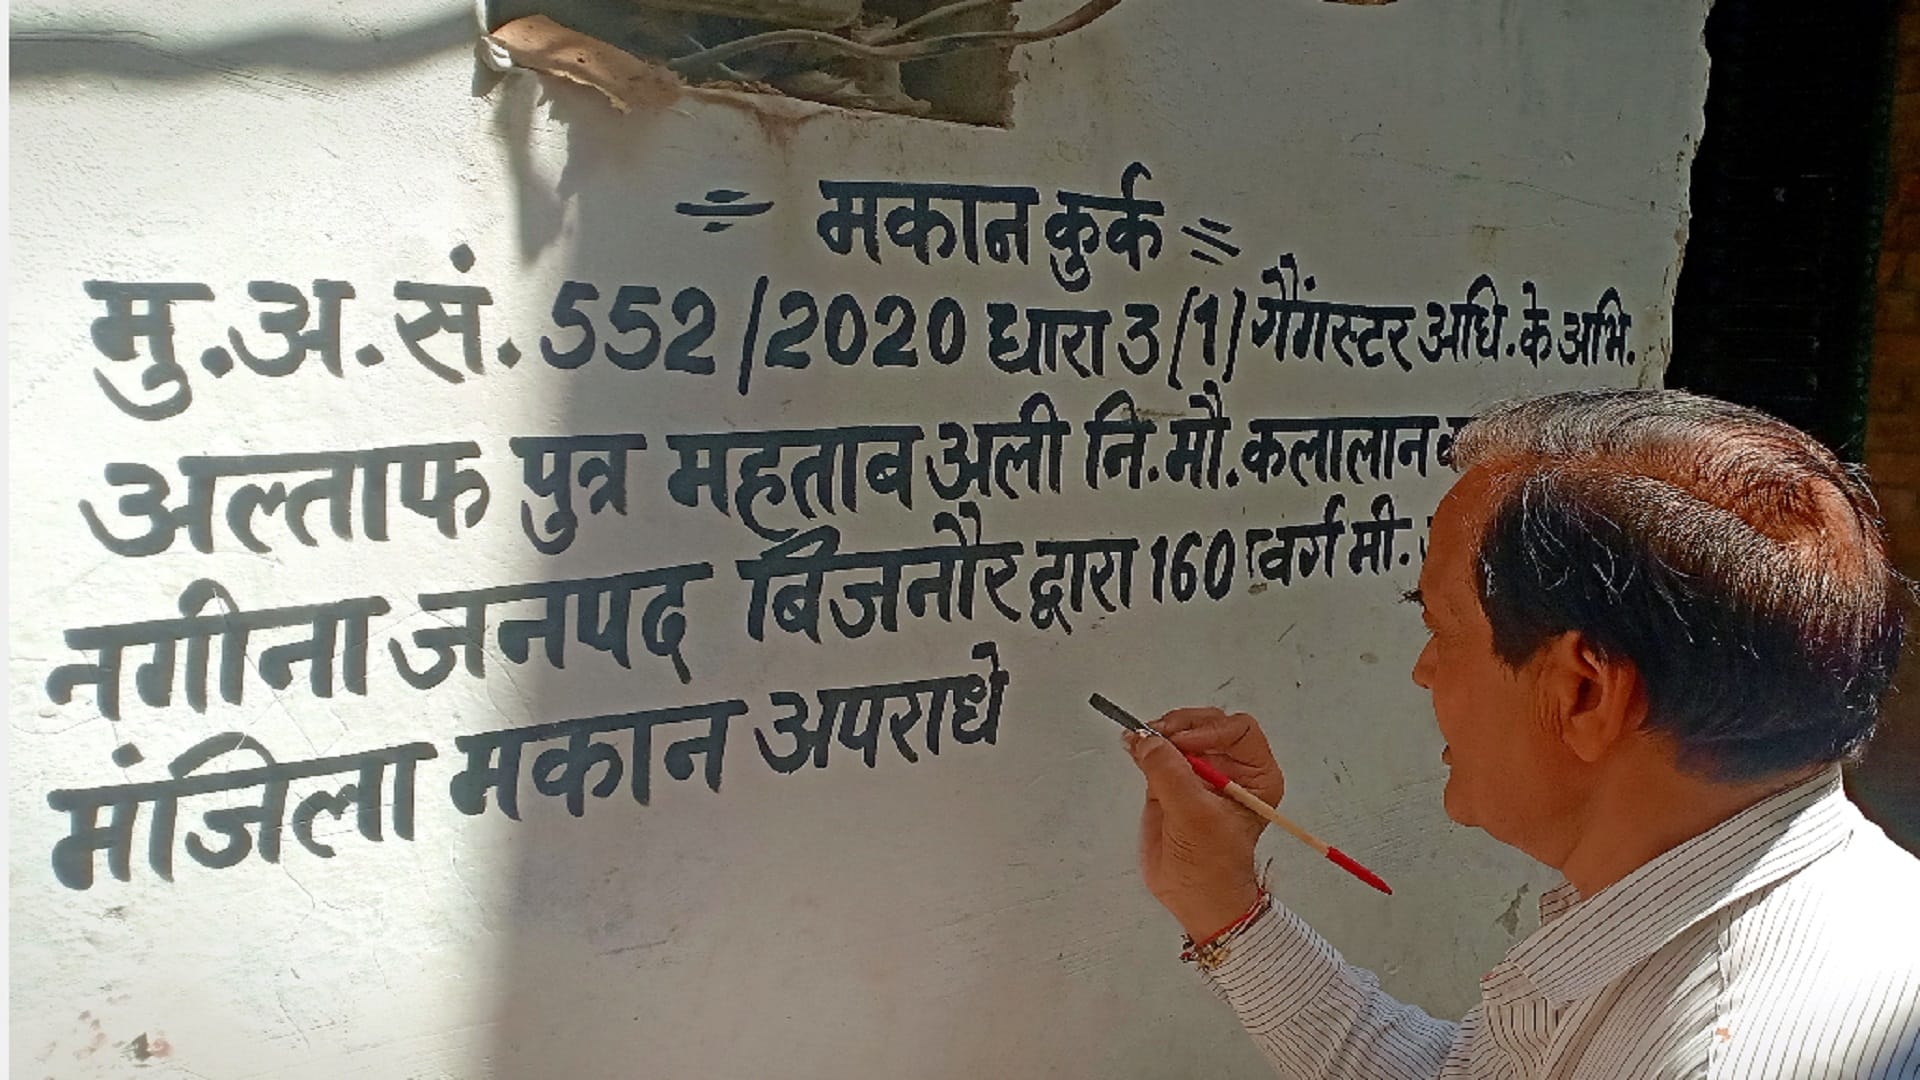 ÷ मकान कुर्क =
मु.अ.सं. 552/2020 धारा 3(1) गैंगस्टर अधि. के अभि.
अल्ताफ पुत्र महताब अली नि. मौ. कलालान
नगीना जनपद बिजनौर द्वारा 160 वर्ग मी.
मंजिला मकान अपराधे